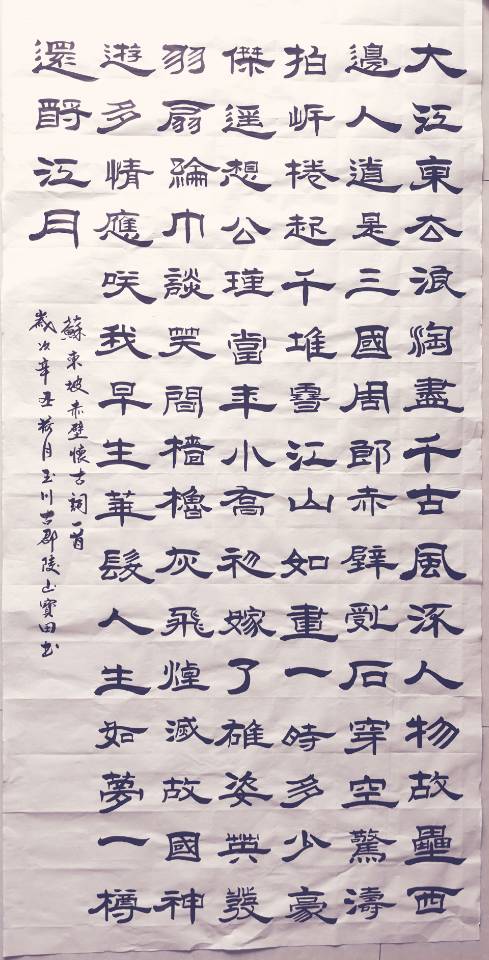 大江東去浪淘盡千古風流人物故壘西
邊人道是三國周郎赤壁亂石穿空驚濤
拍岸捲起千堆雪江山如畫一時多少豪
傑遥想公瑾當年小喬初嫁了雄姿英發
羽扇綸巾談笑間檣櫓灰飛煙滅故國神
遊多情應咲我早生華髮人生如夢一樽
還酹江月
蘇東坡赤壁懷古詞一首
歲次辛丑月玉川古郡陵山寶田書